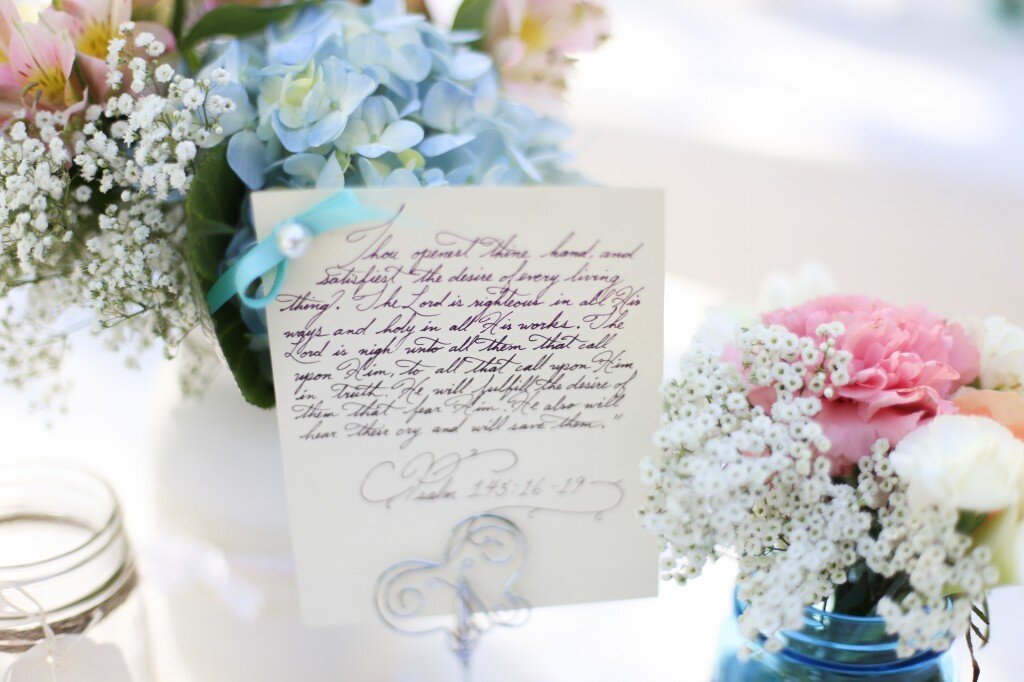 Thou openest thine hand, and
satisfiest the desire of every living
thing. The Lord is righteous in all His
ways and holy in all His works. The
Lord is nigh unto all them that call
upon Him, to all that call upon Him
in truth. He will fulfill the desire of
them that fear Him. He also will
hear their cry and will save them."
Psalm 145:16-19